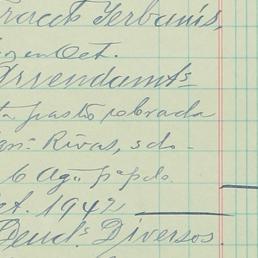 Fract Terbanís,
en Oct.
Arrendamts
pasto cobrada
Rivas, sdo-
6 Ago. ppdo.
Oct. 1942
Deuds. Diversos.